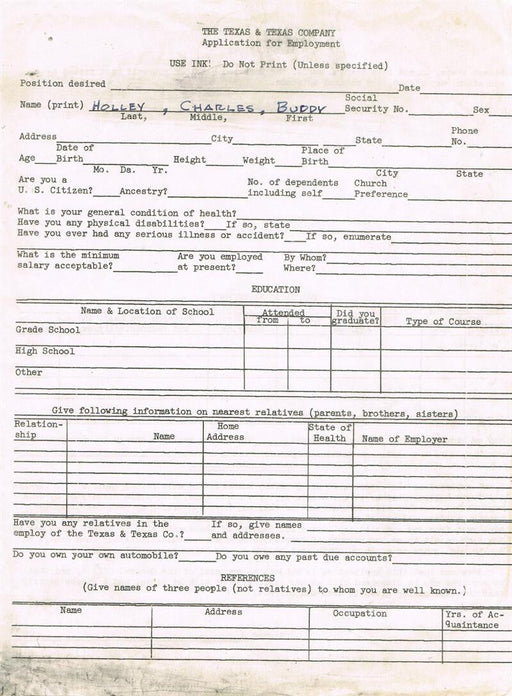 THE TEXAS & TEXAS COMPANY
Application for Employment
USE INK! Do Not Print (Unless specified)
Position desired Date
Name (print) HOLLEY, CHARLES, BUDDY Social Security No. Sex
Last, Middle, First
Address City State Phone No.
Age Date of Birth Height Weight Place of Birth
Mo. Da. Yr. City State
Are you a U. S. Citizen? Ancestry? No. of dependents including self Church Preference
What is your general condition of health?
Have you any physical disabilities? If so, state
Have you ever had any serious illness or accident? If so, enumerate
What is the minimum salary acceptable? Are you employed at present? By Whom? Where?
EDUCATION
Name & Location of School Attended from to Did you graduate? Type of Course
Grade School
High School
Other
Give following information on nearest relatives (parents, brothers, sisters)
Relation-ship Name Home Address State of Health Name of Employer
Have you any relatives in the employ of the Texas & Texas Co.? If so, give names and addresses.
Do you own your own automobile? Do you owe any past due accounts?
REFERENCES
(Give names of three people (not relatives) to whom you are well known.)
Name Address Occupation Yrs. of Ac-quaintance